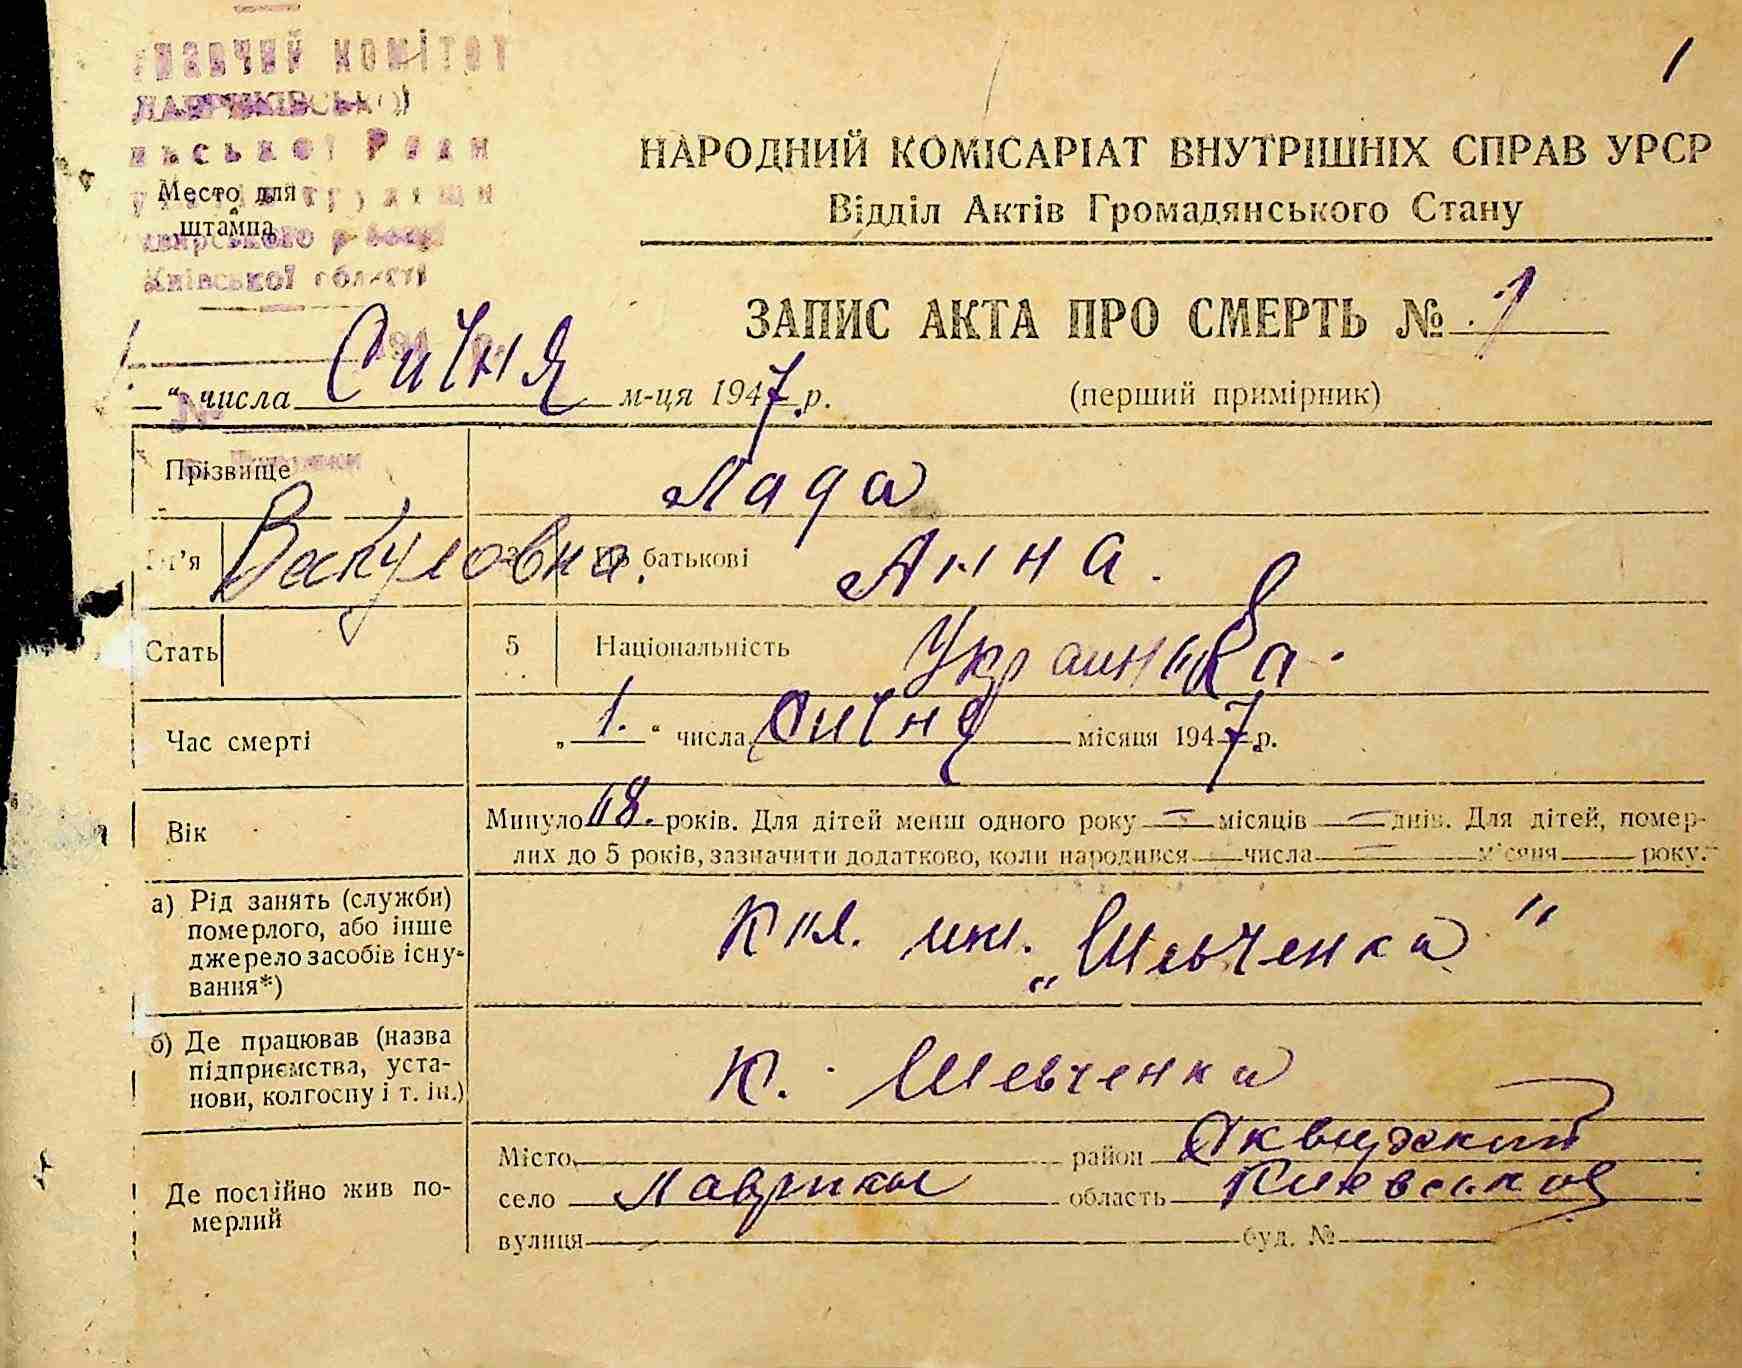 1
комітет
ЛАВРИКІВСЬКОЇ
Київської області
Место для
штампа
НАРОДНИЙ КОМІСАРІАТ ВНУТРІШНІХ СПРАВ УРСР
Відділ Актів Громадянського Стану
ЗАПИС АКТА ПРО СМЕРТЬ № 1
1. " числа Січня м-ця 1947 р.
(перший примірник)
Прізвище Лада
м'я Вакуловна. По батькові Анна.
Стать 5 Національність Украинка.
Час смерті „1." числа Січня місяця 1947 р.
Вік Минуло 68. років. Для дітей менш одного року — місяців — днів. Для дітей, помер-
лих до 5 років, зазначити додатково, коли народився — числа — місяця — року.
а) Рід занять (служби) померлого, або інше джерело засобів існу-вання*) Кол. им. „Шевченка"
б) Де працював (назва підприємства, уста-нови, колгоспу і т. ін.) К. Шевченка
Де постійно жив по-мерлий
Місто район Сквирский
село Лаврики область Киевської
вулиця буд. №